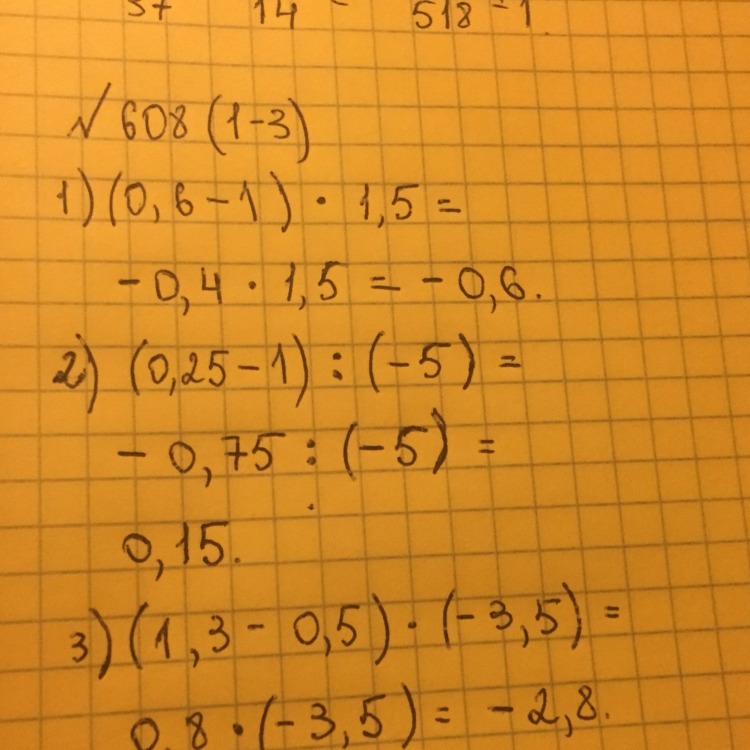 37 14 - 518 = 1.
√ 608 (1-3)
1) (0,6 - 1) · 1,5 =
- 0,4 · 1,5 = - 0,6.
2) (0,25 - 1) : (-5) =
- 0,75 : (-5) =
0,15.
3) (1,3 - 0,5) · (-3,5) =
0,8 · (-3,5) = - 2,8.